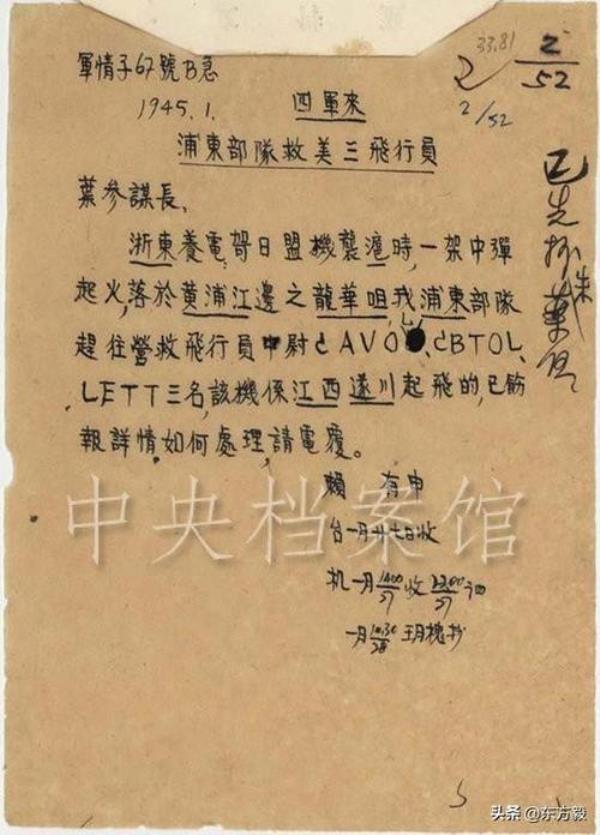 軍情子67號B急
33.81
2
2/52
2/52
1945.1.
四軍來
浦東部隊救美三飛行員
葉參謀長、
浙東養電:哿日盟機襲滬時,一架中彈
起火,落於黄浦江邊之龍華咀,我浦東部隊
趕往營救飛行員中尉dAVOL、dBTOL、
LETT三名,該機係江西遂川起飛的,已飭
報詳情.如何處理,請電覆。
賴 有申
台一月廿七日收
机一月1400/27收2200/27
一月1030/28玥槐抄
已先抄
中央档案馆
头条@东方毅